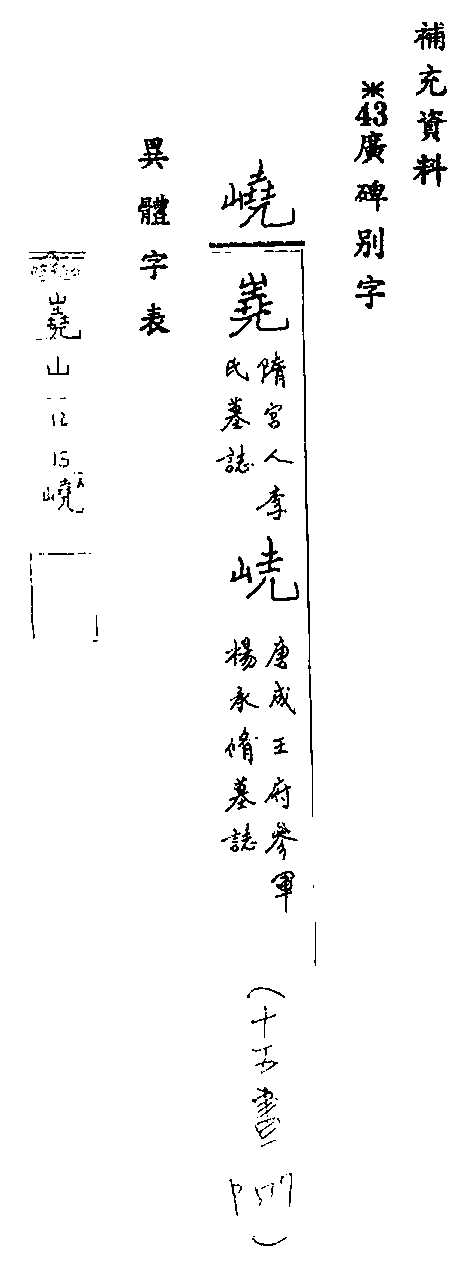 補充資料
※43廣碑別字
嶢
隋宮人李
氏墓誌
唐成王府參軍
楊承脩墓誌
(十五畫
P517)
異體字表
山
12
15
嶢